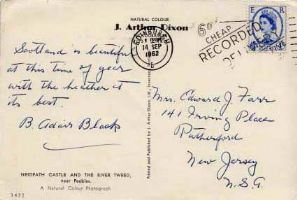 NATURAL COLOUR
J. Arthur Dixon
EDINBURGH
14 SEP
1962
CHEAP
RECORDED
Scotland is beautiful
at this time of year
with the heather at
its best.
B. Adair Black
Mrs. Edward J. Farr
141 Irving Place
Rutherford
New Jersey
U.S.A
NEIDPATH CASTLE AND THE RIVER TWEED,
near Peebles.
A Natural Colour Photograph